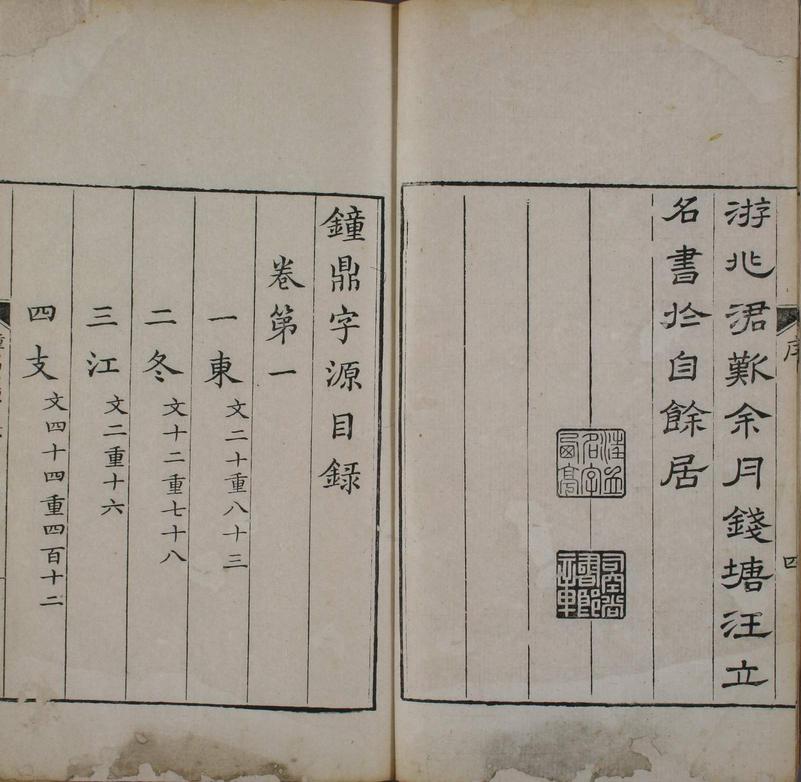 游兆涒歎余月錢塘汪立
名書於自餘居
汪立
名字
西亭
序
四
鐘鼎字源目録
卷第一
一東 文二十重八十三
二冬 文十二重七十八
三江 文二重十六
四支 文四十四重四百十二